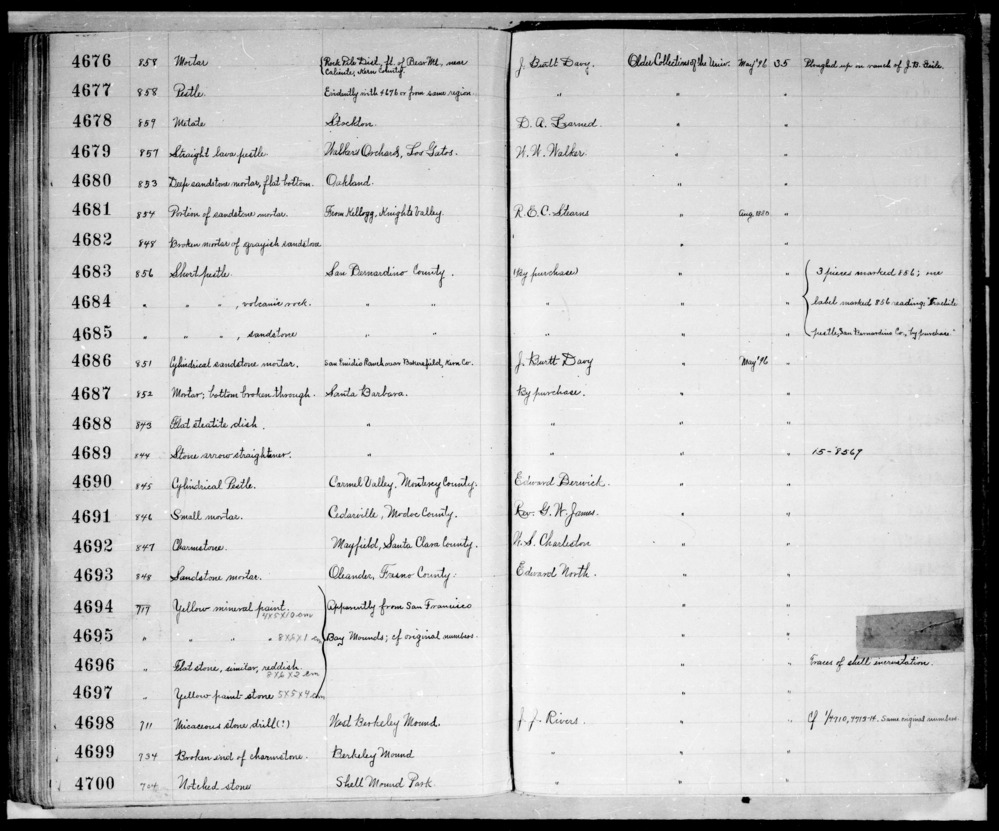 4676 858 Mortar {Rock Pile Dist, ft. of Bear Mt., near Caliente, Kern County. J. Burtt Davy. Older Collections of the Univ. May '96 35 Ploughed up on ranch of J.B.
4677 858 Pestle. Evidently with 4676 or from same region. " " "
4678 859 Metate Stockton. D. A. Learned. " "
4679 857 Straight lava pestle. Walker's Orchard, Los Gatos. W. W. Walker. " "
4680 853 Deep sandstone mortar, flat bottom. Oakland. " "
4681 854 Portion of sandstone mortar. From Kellogg, Knights Valley. R. E. C. Stearns " Aug. 1880 "
4682 848 Broken mortar of grayish sandstone " "
4683 856 Short pestle. San Bernardino County. (By purchase) " " { 3 pieces marked 856; one
4684 " " " , volcanic rock. " " " " " label marked 856 reading: "Trachite
4685 " " " , sandstone " " " " " pestle, San Bernardino Co., by purchase"
4686 851 Cylindrical sandstone mortar. San Emidio Ranch near Bakersfield, Kern Co. J. Burtt Davy " May '96 "
4687 852 Mortar; bottom broken through. Santa Barbara. By purchase. " "
4688 843 Flat steatite dish. " " " "
4689 844 Stone arrow straightener. " " " " 15-8569
4690 845 Cylindrical Pestle. Carmel Valley, Monterey County. Edward Berwick. " "
4691 846 Small mortar. Cedarville, Modoc County. Rev. G. W. James. " "
4692 847 Charmstone. Mayfield, Santa Clara County. W. S. Charleston " "
4693 848 Sandstone mortar. Oleander, Fresno County. Edward North. " "
4694 717 Yellow mineral paint. 4X5X10 cm } Apparently from San Francisco " "
4695 " " " " 8X6X1 cm Bay Mounds; cf original numbers. " "
4696 " Flat stone, similar, reddish. 8X6X2 cm " " Traces of shell incrustation.
4697 " Yellow paint-stone 5X5X4 cm " "
4698 711 Micaceous stone drill(?) West Berkeley Mound. J. J. Rivers. " " Cf 1/4710, 4713-14. Same original numbers.
4699 734 Broken end of charmstone. Berkeley Mound " " "
4700 704 Notched stone Shell Mound Park. " " "